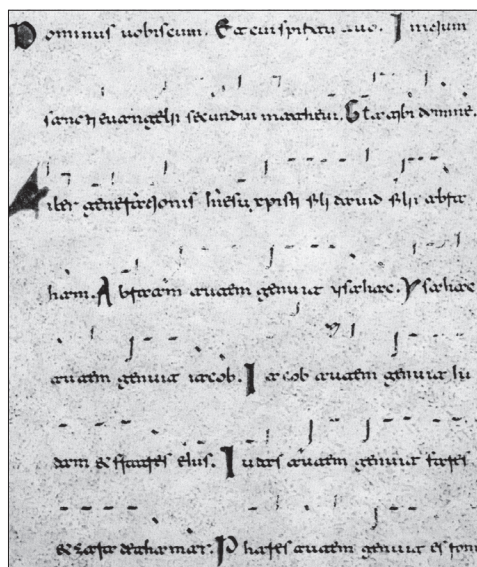 Dominus uobiscum. Et cu spiritu tuo. Initium
sancti euangelii secundu matheu. Gla tibi domine.
Liber generationis hiesu xpisti fili dauid filii abra
ham. Abraam autem genuit ysahac. Ysahac
autem genuit iacob. Iacob autem genuit iu
dam & fratres eius. Iudas autem genuit fares
& zara de thamar. Phares autem genuit esrom